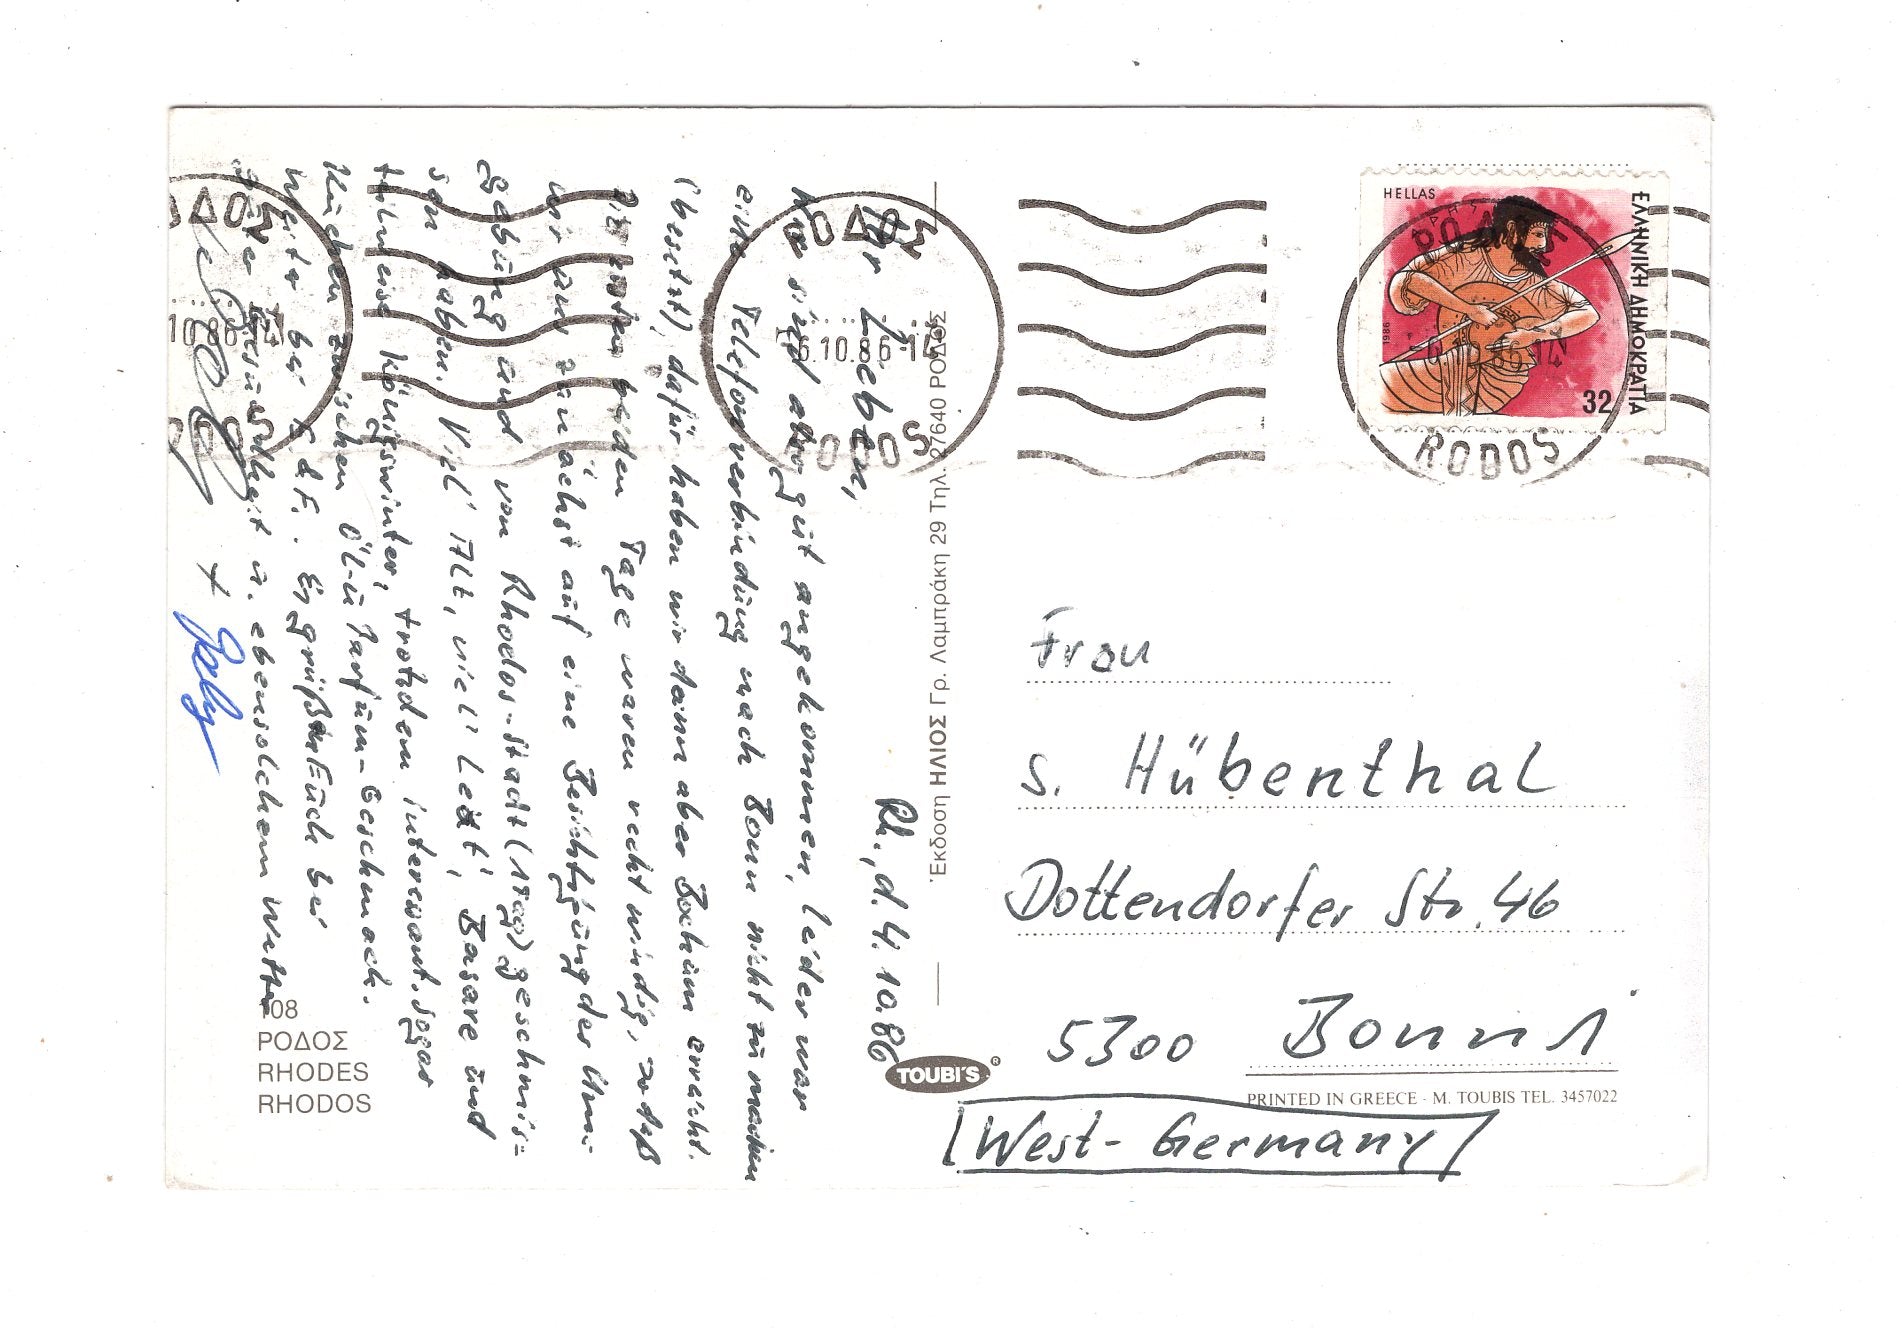 Rh., d. 4.10.86
Ihr Lieben,
wir sind also gut angekommen, leider war
eine Telefonverbindung nach Bonn nicht zu machen
(besetzt), dafür haben wir dann aber Bochum erreicht.
Die ersten beiden Tage waren recht windig, sodaß
wir uns zunächst auf eine Besichtigung der Um-
gebung und von Rhodos-Stadt (1 Tag) geschmis=
sen haben. Viel Alt, viel Leut', Basare und
teilweise köniss winter, trotzdem interessant. Sogar
Kirchen zwischen Öl- u Parfüm-Geschmack.
Weiter bei S. d. F.: Er grüßet Euch bei
guter Gesundheit u. ebensolchem Wetter
+ Gaby
108
ΡΟΔΟΣ
RHODES
RHODOS
Ἔκδοση ΗΛΙΟΣ Γρ. Λαμπράκη 29 Τηλ. 27640 ΡΟΔΟΣ
TOUBI'S ®
HELLAS
ΕΛΛΗΝΙΚΗ ΔΗΜΟΚΡΑΤΙΑ
1986
32
ΡΟΔΟΣ
6.10.86-14
RODOS
ΡΟΔΟΣ
10.86-14
RODOS
ΡΟΔΟΣ
RODOS
Frau
S. Hübenthal
Dottendorfer Str. 46
5300 Bonn 1
PRINTED IN GREECE - M. TOUBIS TEL. 3457022
West-Germany